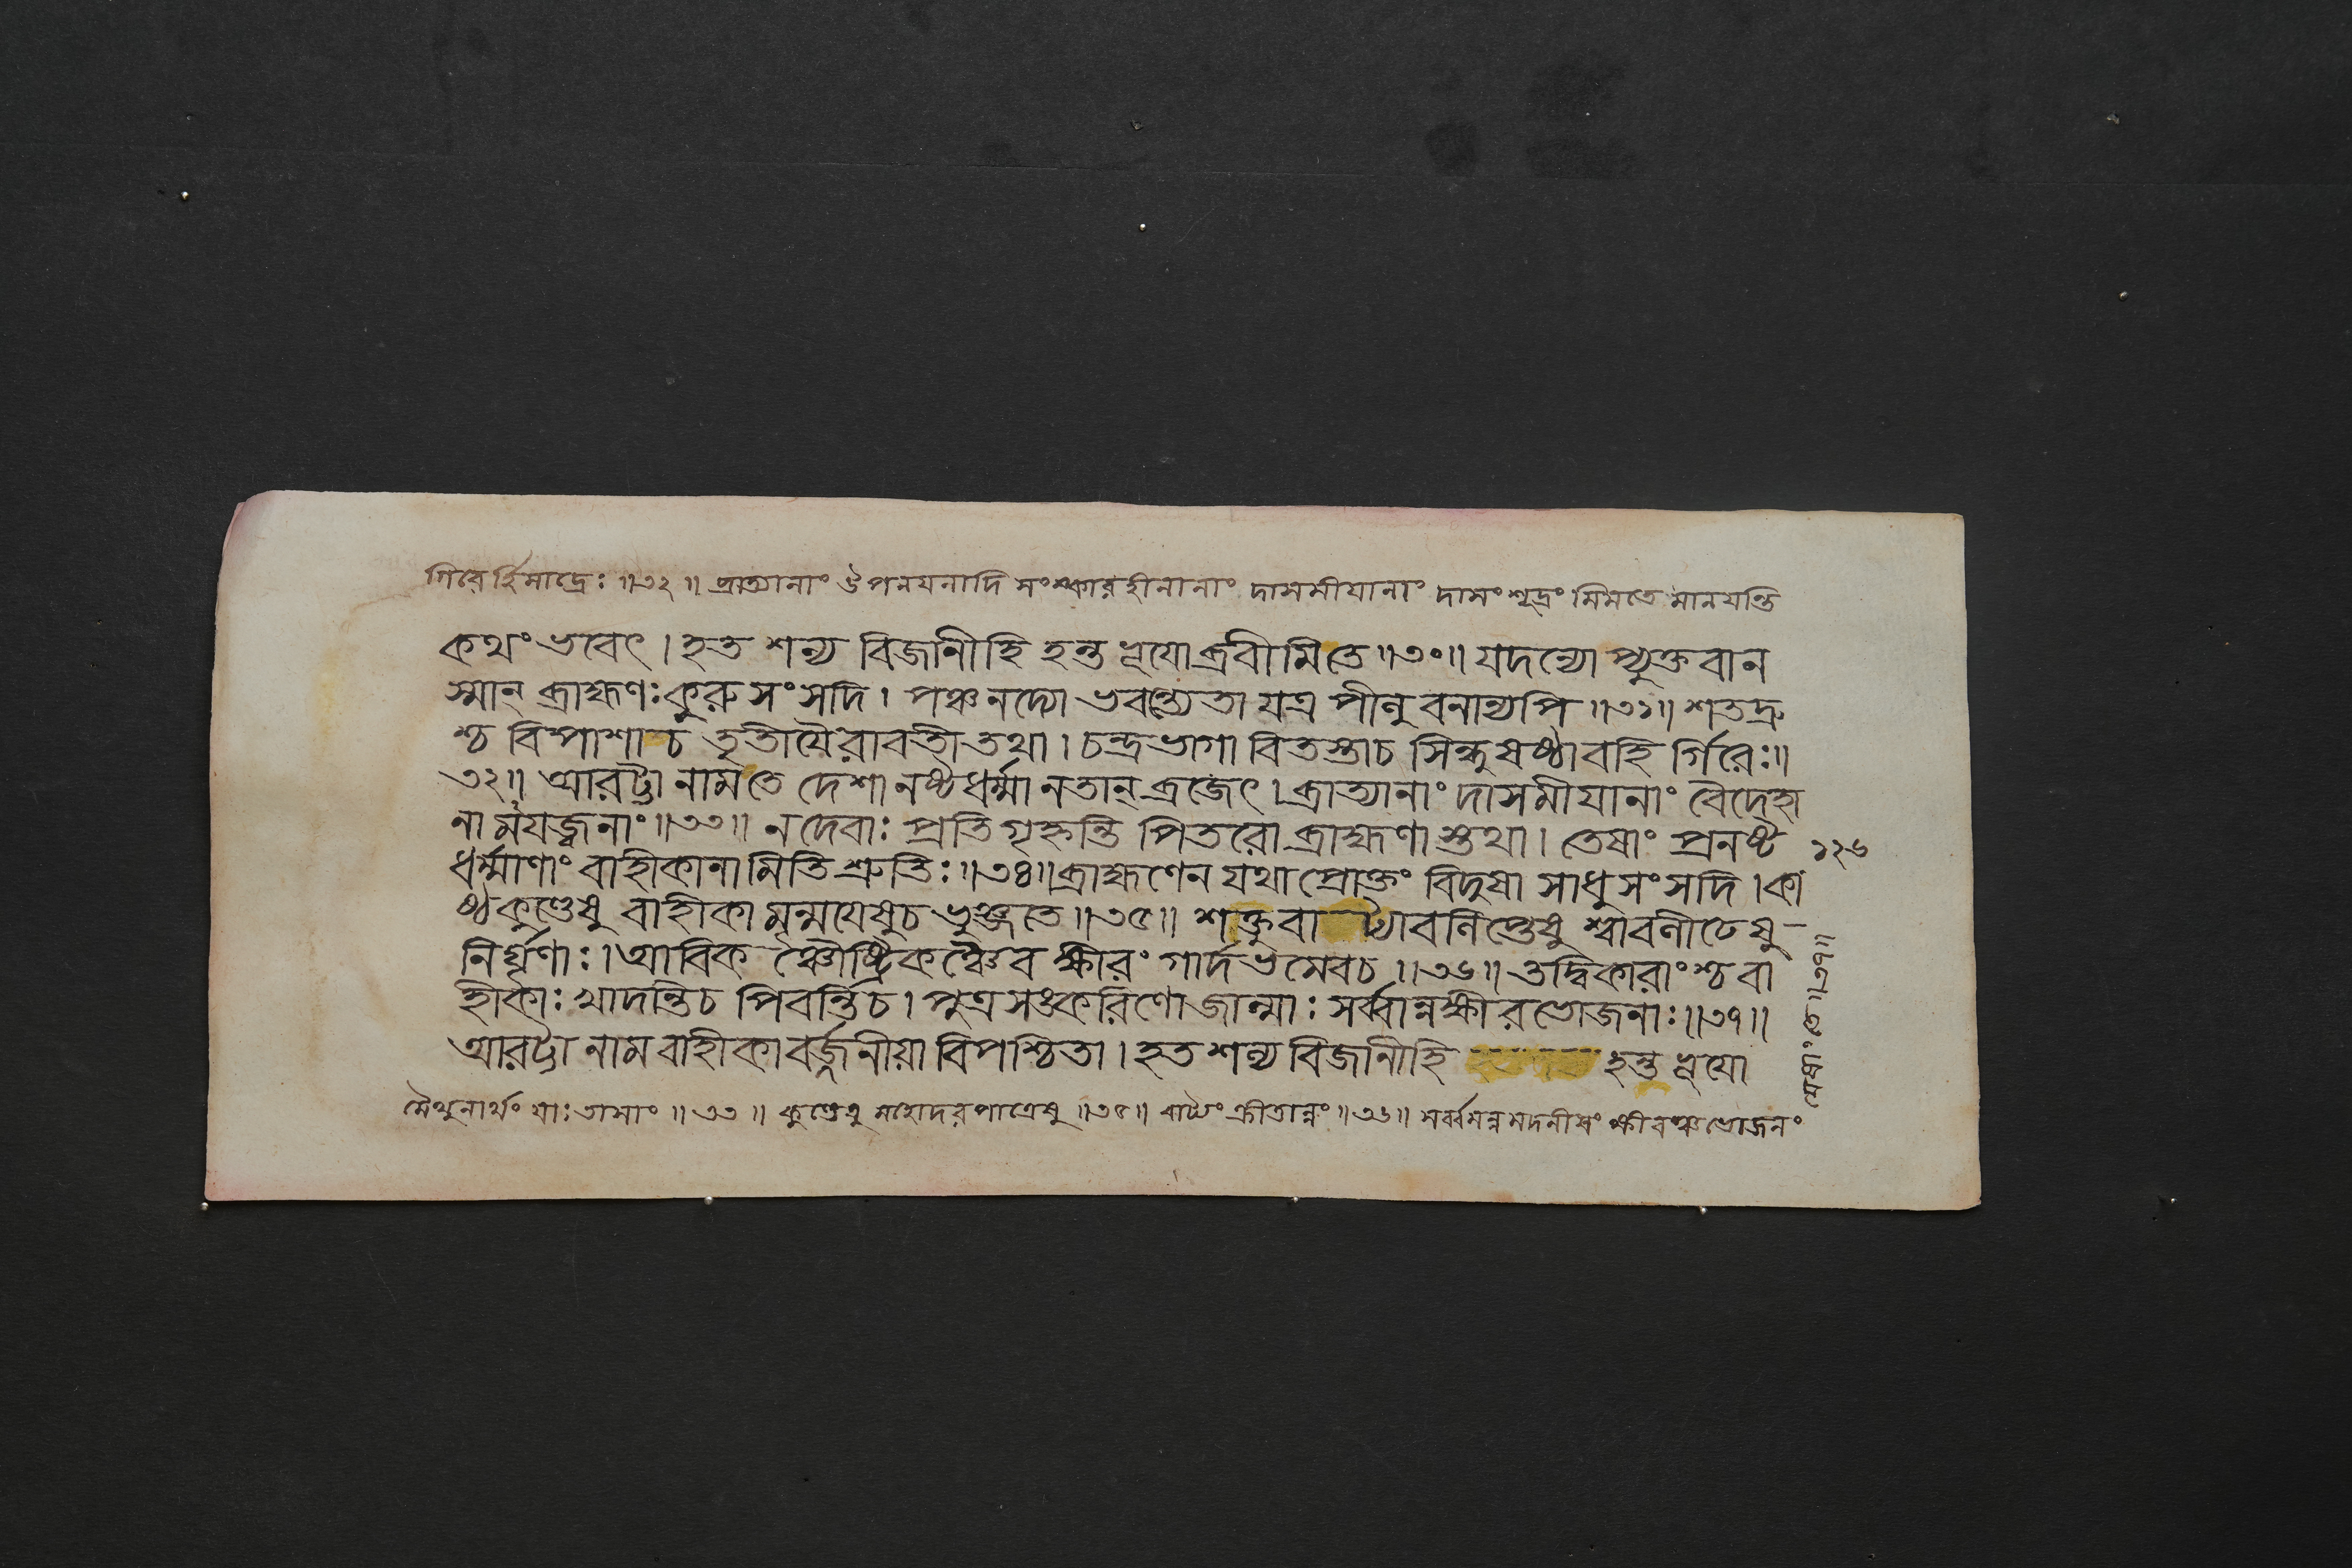 গিরের্হিমাদ্রেঃ ॥৩২॥ ব্রাত্যানাং ঔপনয়নাদি সংস্কারহীনানাং দাসমীযানাং দাসং শূদ্রং মিমতে মানয়ন্তি
কথং ভবেৎ । হত শল্য বিজানীহি হন্ত ভূযো ব্রবীমি তে ॥৩০॥ যদন্যো প্যুক্তবান
স্মান্ ব্রাহ্মণঃ কুরুসংসদি । পঞ্চ নদ্যো ভবন্ত্যেতা যত্র পীলু বনান্যপি ॥৩১॥ শতদ্রু
শ্চ বিপাশা চ তৃতীযৈরাবতী তথা । চন্দ্রভাগা বিতস্তা চ সিন্ধুষষ্ঠা বহি র্গিরেঃ ॥
৩২॥ আরট্টা নাম তে দেশা নষ্টধর্ম্মা ন তান্ ব্রজেৎ । ব্রাত্যানাং দাসমীযানাং বৈদেহা
নামযজ্বনাং ॥৩৩॥ ন দেবাঃ প্রতিগৃহ্নন্তি পিতরো ব্রাহ্মণাস্তথা । তেষাং প্রনষ্ট
১২৬
ধর্ম্মাণাং বাহীকানামিতি শ্রুতিঃ ॥৩৪॥ ব্রাহ্মণেন যথা প্রোক্তং বিদুষা সাধুসংসদি । কা
ষ্ঠকুণ্ডেষু বাহীকা মৃন্ময়েষু চ ভুঞ্জতে ॥৩৫॥ শক্তুবাট্যাবলিপ্তেষু শ্বাবলীঢেষু
নির্ঘৃণাঃ । আবিকঞ্চৌষ্ট্রিকঞ্চৈব ক্ষীরং গার্দভমেব চ ॥৩৬॥ তদ্বিকারাংশ্চ বা
হীকাঃ খাদন্তি চ পিবন্তি চ । পুত্রসঙ্করিণো জাল্মাঃ সর্ব্বান্নক্ষীরভোজনাঃ ॥৩৭॥
আরট্টা নাম বাহীকা বর্জ্জনীয়া বিপশ্চিতা । হত শল্য বিজানীহি হন্ত ভূযো
মৈথুনার্থং যাঃ তাসাং ॥৩৩॥ কুণ্ডেষু মহোদরপাত্রেষু ॥৩৫॥ বাট্যং ক্রীতান্নং ॥৩৬॥ সর্ব্বমন্নমদনীয়ং ক্ষীরঞ্চ ভোজনং
যেষাং তে ॥৩৭॥